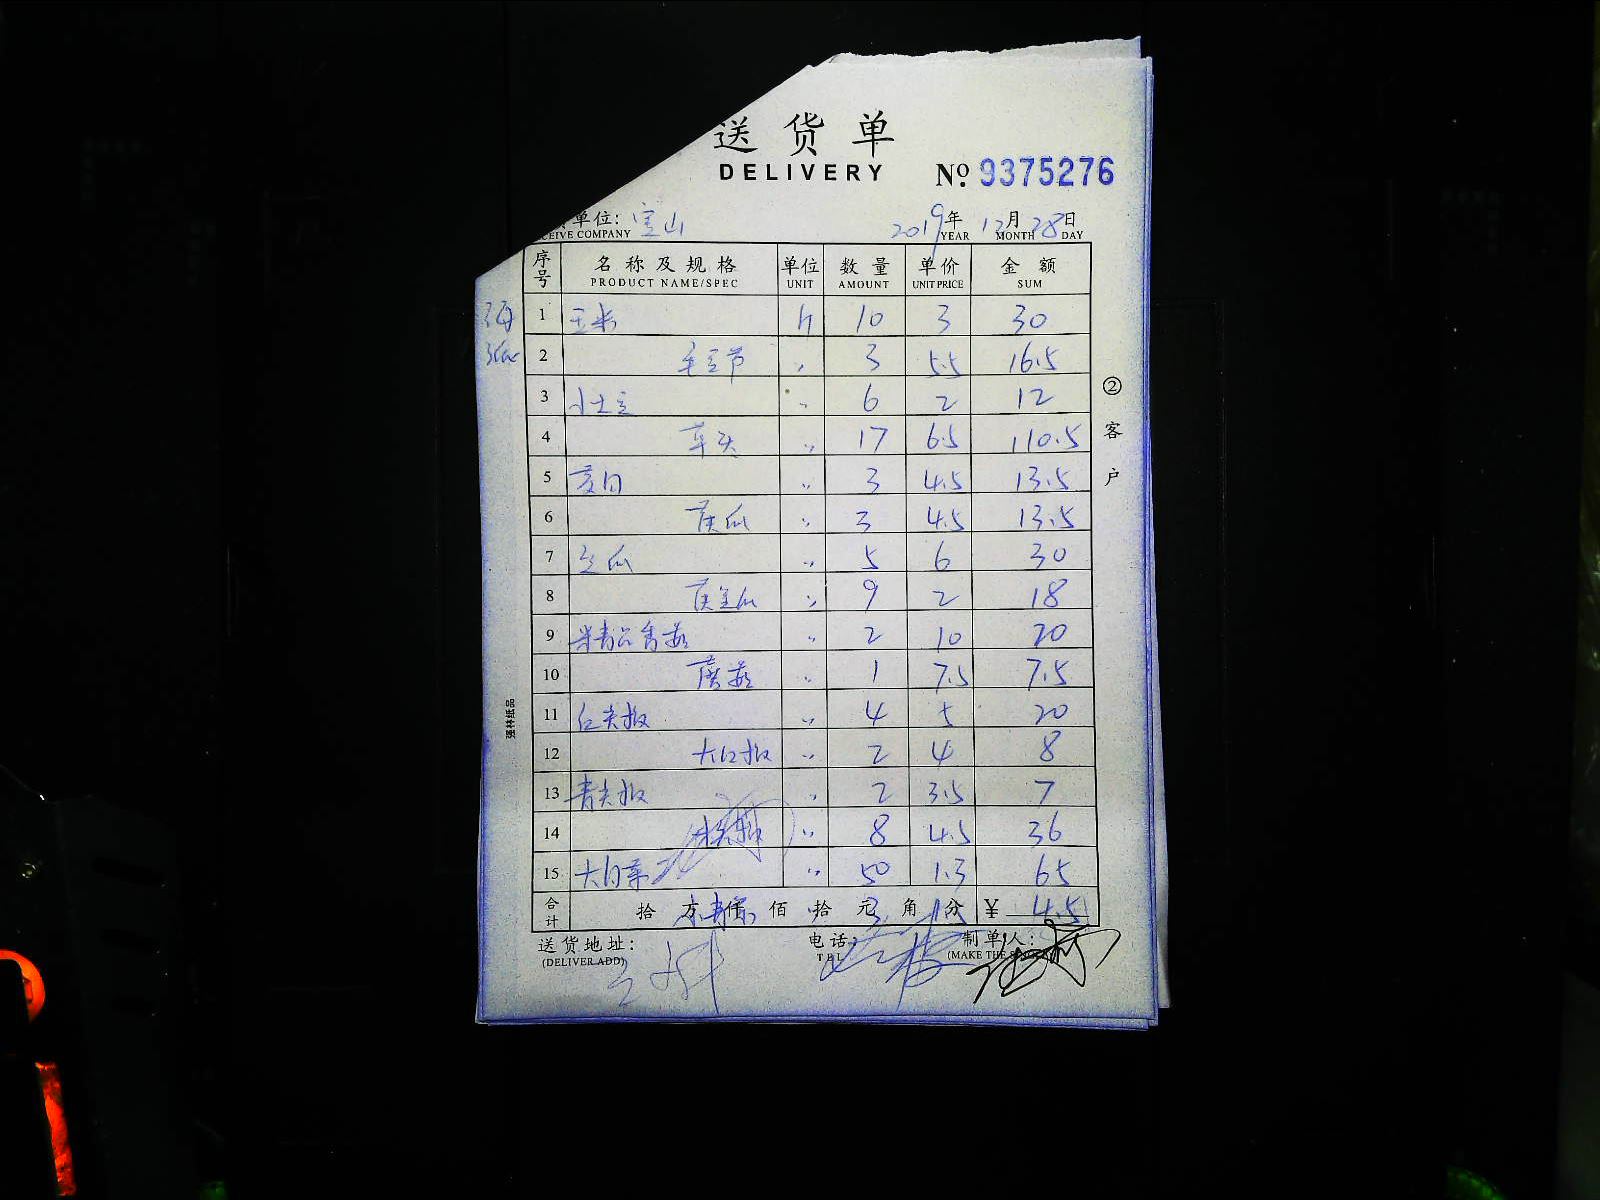 送货单
DELIVERY
No. 9375276
单位: 宝山 2019年 12月 28日
CEIVE COMPANY YEAR MONTH DAY
序号 名称及规格 单位 数量 单价 金额
PRODUCT NAME/SPEC UNIT AMOUNT UNIT PRICE SUM
1 玉米 斤 10 3 30
2 毛豆节 〃 3 5.5 16.5
3 小土豆 〃 6 2 12
4 草头 〃 17 6.5 110.5
5 〃 3 4.5 13.5
6 瓜 〃 3 4.5 13.5
7 瓜 〃 5 6 30
8 〃 9 2 18
9 精品香菇 〃 2 10 20
10 蘑菇 〃 1 7.5 7.5
11 红尖椒 〃 4 5 20
12 大红椒 〃 2 4 8
13 青尖椒 〃 2 3.5 7
14 〃 8 4.5 36
15 大白菜 〃 50 1.3 65
合计 拾 万 仟 佰 拾 元 角 分 ¥ 4.5
3 1.5
送货地址: 电话: 制单人:
(DELIVER ADD) TEL (MAKE THE
②客户
强林纸品